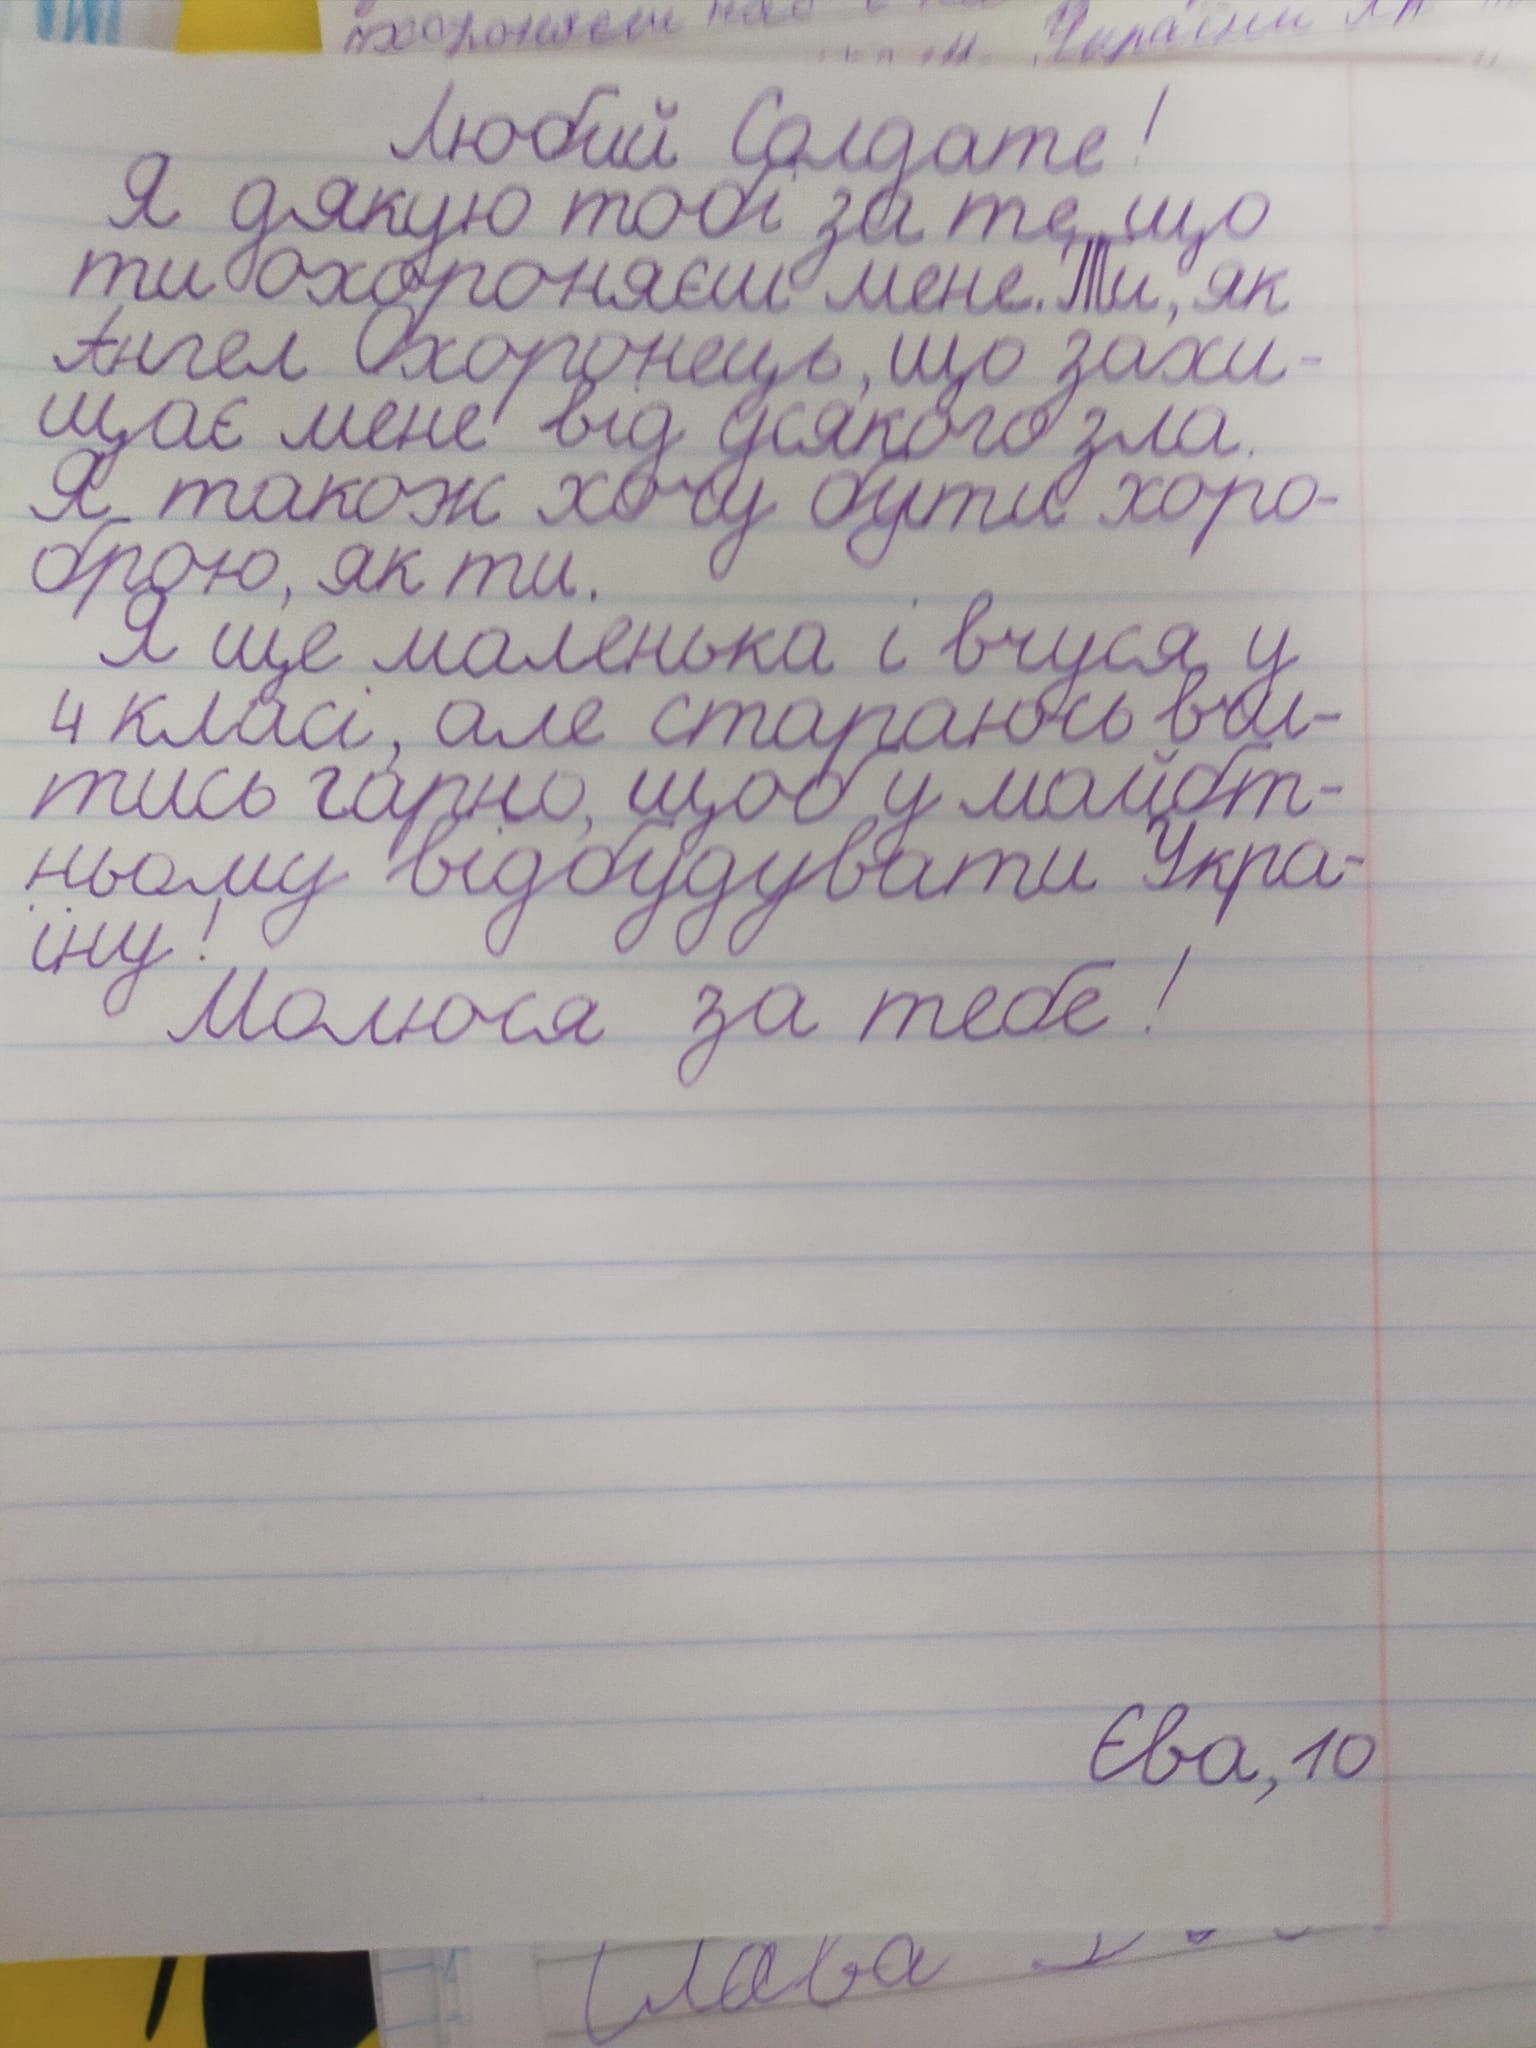 охороняєш нас
України
Любий Солдате!
Я дякую тобі за те, що
ти охороняєш мене. Ти, як
Ангел Охоронець, що захи-
щає мене від усякого зла.
Я також хочу бути хоро-
брою, як ти.
Я ще маленька і вчуся у
4 класі, але стараюсь вчи-
тись гарно, щоб у майбут-
ньому відбудувати Укра-
їну!
Молюся за тебе!
Єва, 10
Слава